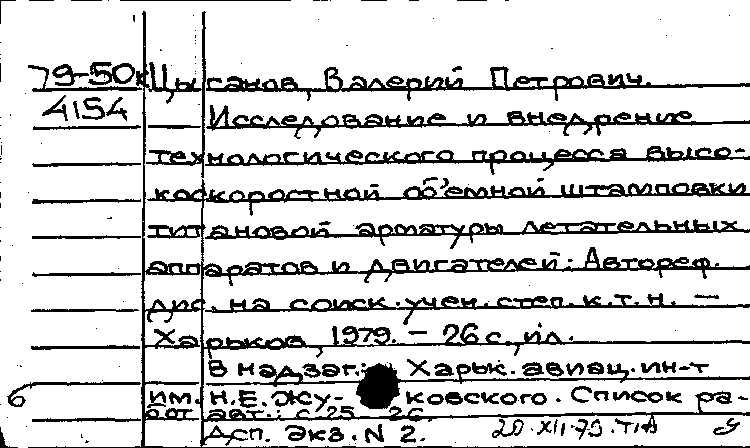 79-50к Цысанов, Валерий Петрович.
4154 Исследование и внедрение
технологического процесса высо-
коскоростной об'емной штамповки
титановой арматуры летательных
аппаратов и двигателей: Автореф.
дис. на соиск. учен. степ. к.т.н. —
Харьков, 1979. - 26 с., ил.
В надзаг.: Харьк. авиац. ин-т
6 им. Н.Е. Жу- ковского. Список ра-
бот авт.: с. 25-26.
Дсп. Экз. N 2. 20.XII.79.